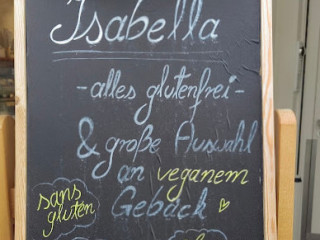 Isabella
- alles glutenfrei -
& große Auswahl
an veganem
Gebäck
sans
gluten